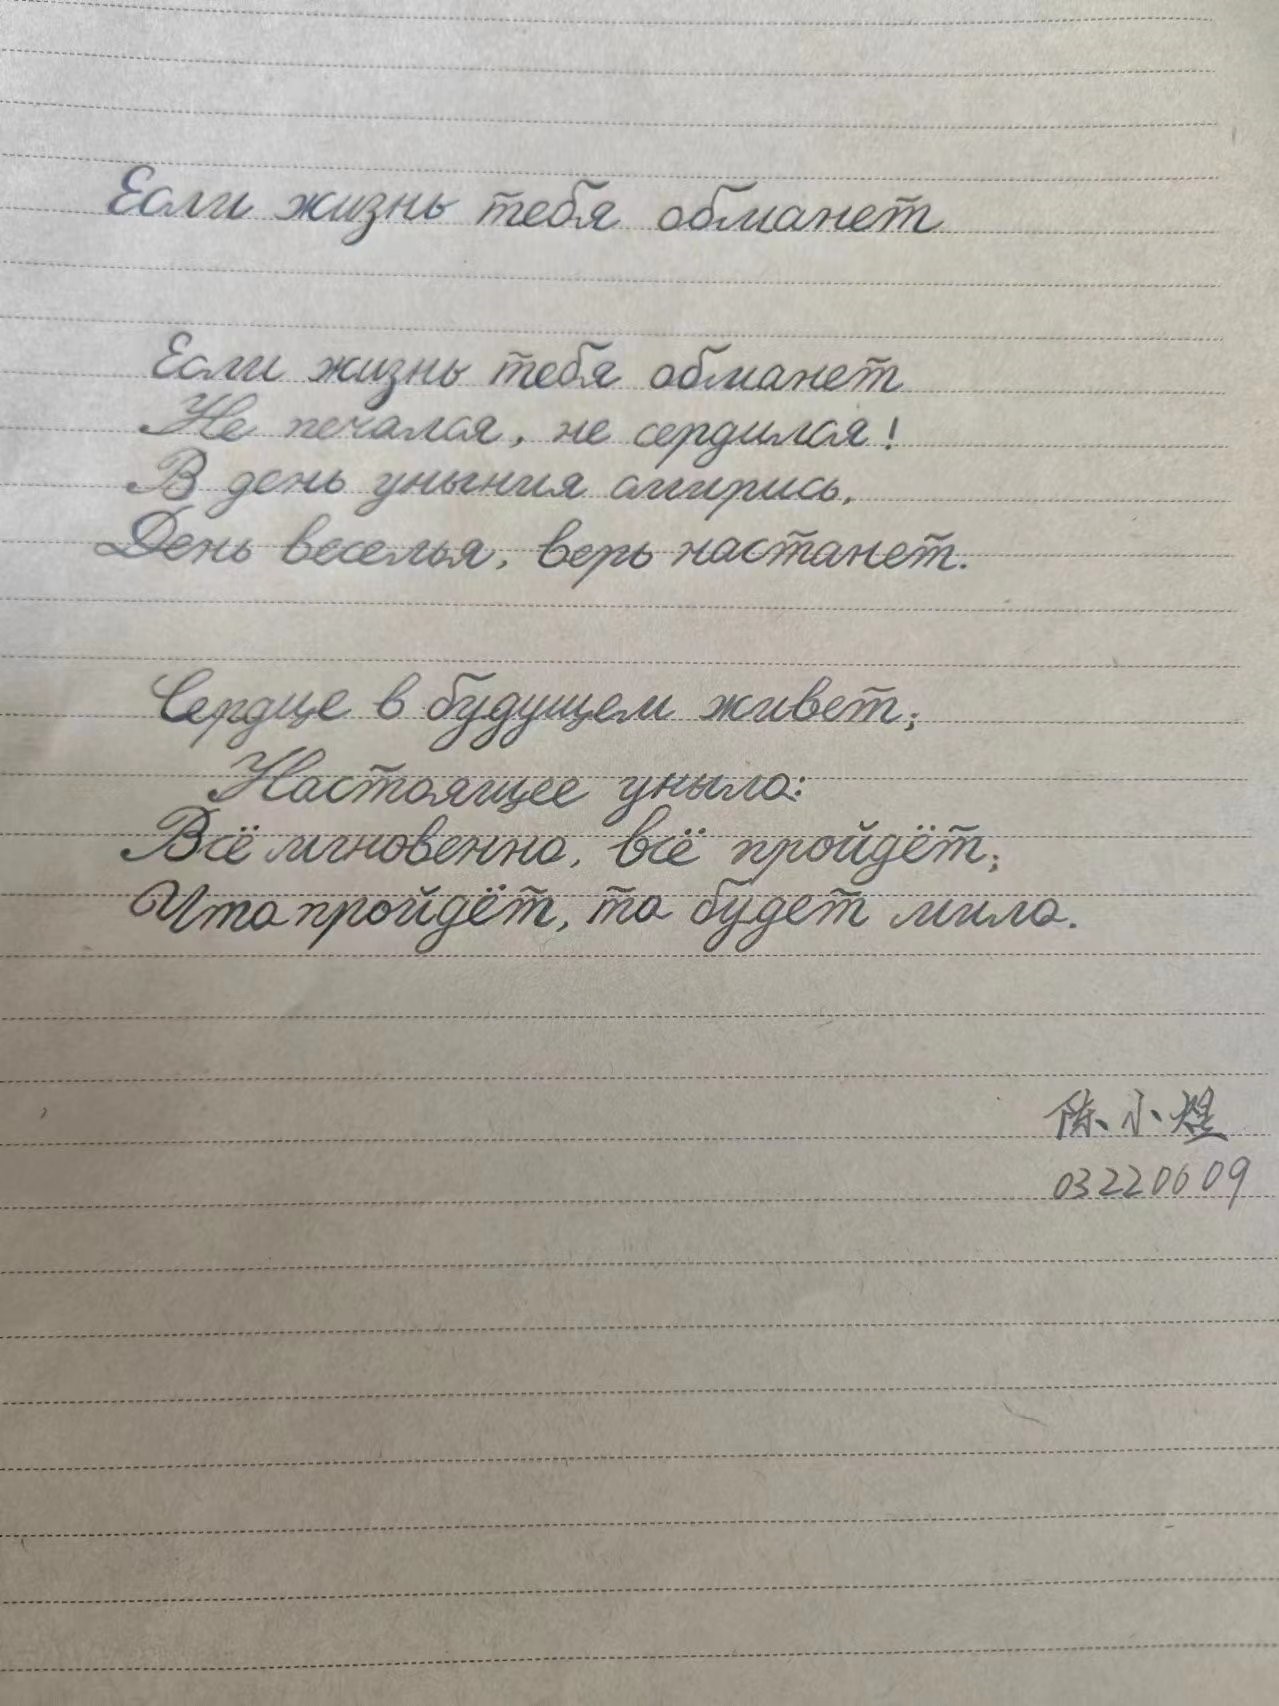 Если жизнь тебя обманет
Если жизнь тебя обманет
Не печался, не сердился!
В день уныния смирись,
День веселья, верь настанет.
Сердце в будущем живет;
Настоящее уныло:
Всё мгновенно, всё пройдёт;
Что пройдёт, то будет мило.
陈小煜
03220609